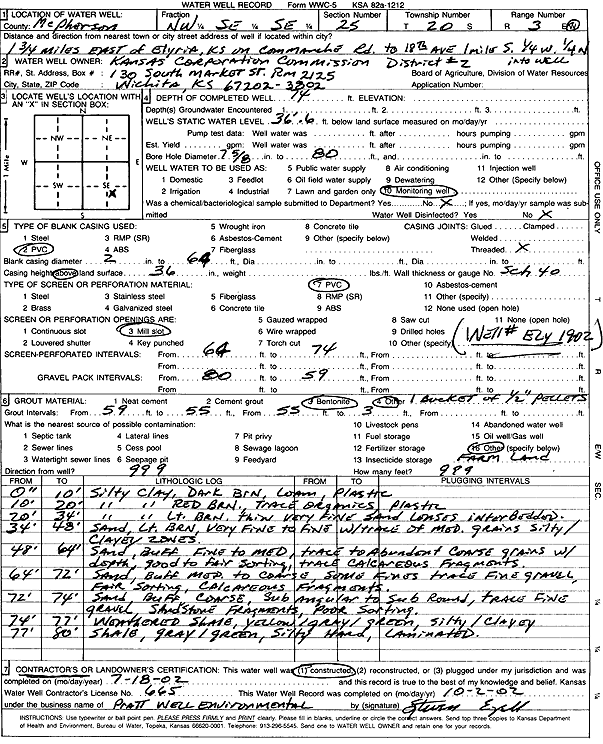 WATER WELL RECORD Form WWC-5 KSA 82a-1212
1 LOCATION OF WATER WELL: Fraction Section Number Township Number Range Number
County: McPherson NW ¼ SE ¼ SE ¼ 25 T 20 S R 3 E/W
Distance and direction from nearest town or city street address of well if located within city?
1 3/4 miles East of Elyria, KS on Commanche Rd. to 18th Ave 1 mile S. 1/4 W. 1/4 N
2 WATER WELL OWNER: Kansas Corporation Commission District #2 into well
RR#, St. Address, Box # : 130 South Market St. Rm 2125 Board of Agriculture, Division of Water Resources
City, State, ZIP Code : Wichita, KS 67202-3802 Application Number:
3 LOCATE WELL'S LOCATION WITH AN "X" IN SECTION BOX:
N
NW NE
W E
SW SE
X
S
1 Mile
4 DEPTH OF COMPLETED WELL 74 ft. ELEVATION:
Depth(s) Groundwater Encountered 1. ft. 2. ft. 3. ft.
WELL'S STATIC WATER LEVEL 36'.6 ft. below land surface measured on mo/day/yr
Pump test data: Well water was ft. after hours pumping gpm
Est. Yield gpm: Well water was ft. after hours pumping gpm
Bore Hole Diameter 7 5/8 in. to 80 ft., and in. to ft.
WELL WATER TO BE USED AS: 5 Public water supply 8 Air conditioning 11 Injection well
1 Domestic 3 Feedlot 6 Oil field water supply 9 Dewatering 12 Other (Specify below)
2 Irrigation 4 Industrial 7 Lawn and garden only 10 Monitoring well
Was a chemical/bacteriological sample submitted to Department? Yes No X If yes, mo/day/yr sample was sub-
mitted Water Well Disinfected? Yes No X
5 TYPE OF BLANK CASING USED: 5 Wrought iron 8 Concrete tile CASING JOINTS: Glued Clamped
1 Steel 3 RMP (SR) 6 Asbestos-Cement 9 Other (specify below) Welded
2 PVC 4 ABS 7 Fiberglass Threaded X
Blank casing diameter 2 in. to 64 ft., Dia in. to ft., Dia in. to ft.
Casing height above land surface 36 in., weight lbs./ft. Wall thickness or gauge No. Sch 40
TYPE OF SCREEN OR PERFORATION MATERIAL: 7 PVC 10 Asbestos-cement
1 Steel 3 Stainless steel 5 Fiberglass 8 RMP (SR) 11 Other (specify)
2 Brass 4 Galvanized steel 6 Concrete tile 9 ABS 12 None used (open hole)
SCREEN OR PERFORATION OPENINGS ARE: 5 Gauzed wrapped 8 Saw cut 11 None (open hole)
1 Continuous slot 3 Mill slot 6 Wire wrapped 9 Drilled holes
2 Louvered shutter 4 Key punched 7 Torch cut 10 Other (specify)
(Well# Ely 1902)
SCREEN-PERFORATED INTERVALS: From 64 ft. to 74 ft., From ft. to ft.
From ft. to ft., From ft. to ft.
GRAVEL PACK INTERVALS: From 80 ft. to 59 ft., From ft. to ft.
From ft. to ft., From ft. to ft.
6 GROUT MATERIAL: 1 Neat cement 2 Cement grout 3 Bentonite 4 Other 1 Bucket of 1/2" Pellets
Grout Intervals: From 59 ft. to 55 ft., From 55 ft. to 3 ft., From ft. to ft.
What is the nearest source of possible contamination: 10 Livestock pens 14 Abandoned water well
1 Septic tank 4 Lateral lines 7 Pit privy 11 Fuel storage 15 Oil well/Gas well
2 Sewer lines 5 Cess pool 8 Sewage lagoon 12 Fertilizer storage 16 Other (specify below)
3 Watertight sewer lines 6 Seepage pit 9 Feedyard 13 Insecticide storage Farm Land
Direction from well? 999 How many feet? 989
FROM TO LITHOLOGIC LOG FROM TO PLUGGING INTERVALS
0" 10' Silty Clay, Dark Brn, Loam, Plastic
10' 20' " " Red Brn, Trace Organics, Plastic
20' 34' " " Lt. Brn. Thin Very Fine Sand Lenses interbedded.
34' 48' Sand, Lt. Brn, Very Fine to Fine w/trace of Med. grains Silty/
Clayey Zones.
48' 64' Sand, Buff Fine to Med, trace to Abundent Coarse grains w/
depth, good to Fair Sorting, trace Calcareous Fragments.
64' 72' Sand, Buff Med. to Coarse Some Fines trace Fine gravel,
Fair Sorting, Calcareous Fragments.
72' 74' Sand Buff Coarse, Sub Angular to Sub Round, trace Fine
gravel Sandstone Fragments, Poor Sorting.
74' 77' Weathered Shale, Yellow/gray/green, Silty/Clayey
77' 80' Shale, gray/green, Silty Hard, Laminated.
7 CONTRACTOR'S OR LANDOWNER'S CERTIFICATION: This water well was (1) constructed, (2) reconstructed, or (3) plugged under my jurisdiction and was
completed on (mo/day/year) 7-18-02 and this record is true to the best of my knowledge and belief. Kansas
Water Well Contractor's License No. 665 This Water Well Record was completed on (mo/day/yr) 10-2-02
under the business name of Pratt Well Environmental by (signature)
INSTRUCTIONS: Use typewriter or ball point pen. PLEASE PRESS FIRMLY and PRINT clearly. Please fill in blanks, underline or circle the correct answers. Send top three copies to Kansas Department
of Health and Environment, Bureau of Water, Topeka, Kansas 66620-0001. Telephone: 913-296-5545. Send one to WATER WELL OWNER and retain one for your records.
OFFICE USE ONLY
T
R
E/W
SEC.
¼
¼
¼